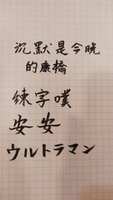 沉默是今晚
的康橋
練字噗
安安
ウルトラマン